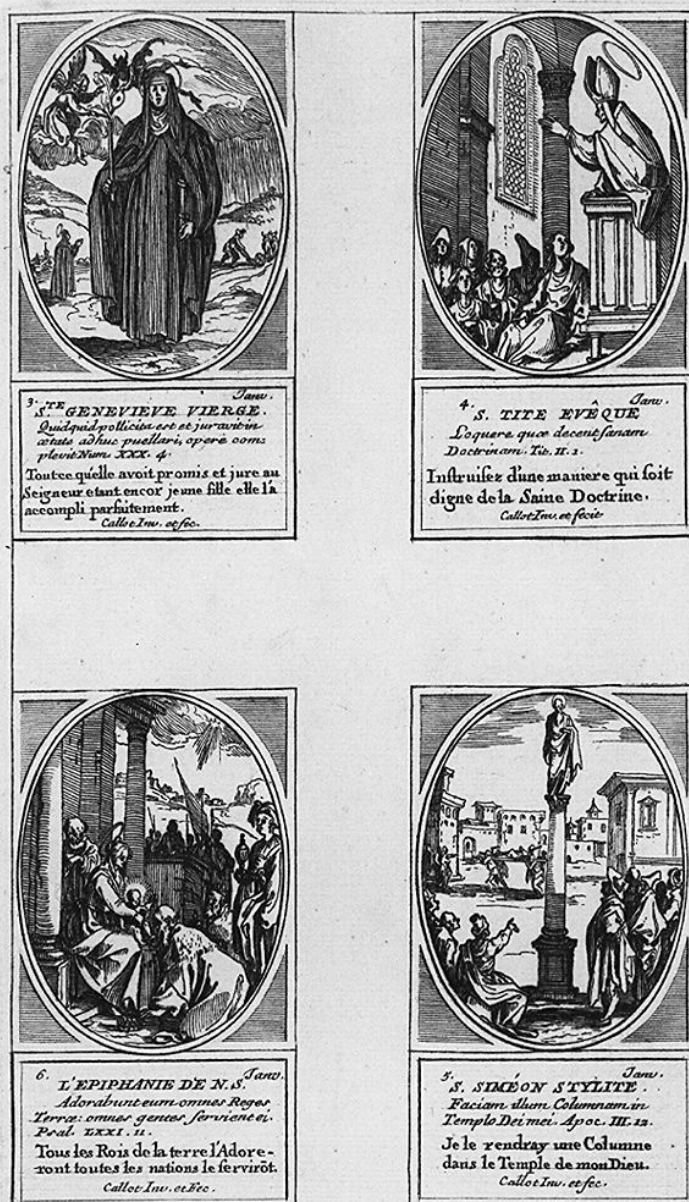 3. Janv.
S.TE GENEVIEVE VIERGE.
Quidquid pollicita est et juravit in
ætate adhuc puellari, opere com=
plevit Num XXX. 4.
Toutce qu'elle avoit promis et jure au
Seigneur etant encor jeune fille elle l'a
accompli parfaitement.
Callot Inv. et fec.
4. Janv.
S. TITE EVÊQUE
Loquere quæ decent sanam
Doctrinam. Tit. II. 1.
Instruisez d'une maniere qui soit
digne de la Saine Doctrine.
Callot Inv. et fecit
6. Janv.
L'EPIPHANIE DE N. S.
Adorabunt eum omnes Reges
Terræ: omnes gentes servient ei.
Psal. LXXI. 11.
Tous les Rois de la terre l'Adore-
ront toutes les nations le servirõt.
Callot Inv. et Fec.
5. Janv.
S. SIMÉON STYLITE.
Faciam illum Columnam in
Templo Dei mei. Apoc. III. 12.
Je le rendray une Columne
dans le Temple de mon Dieu.
Callot Inv. et fec.